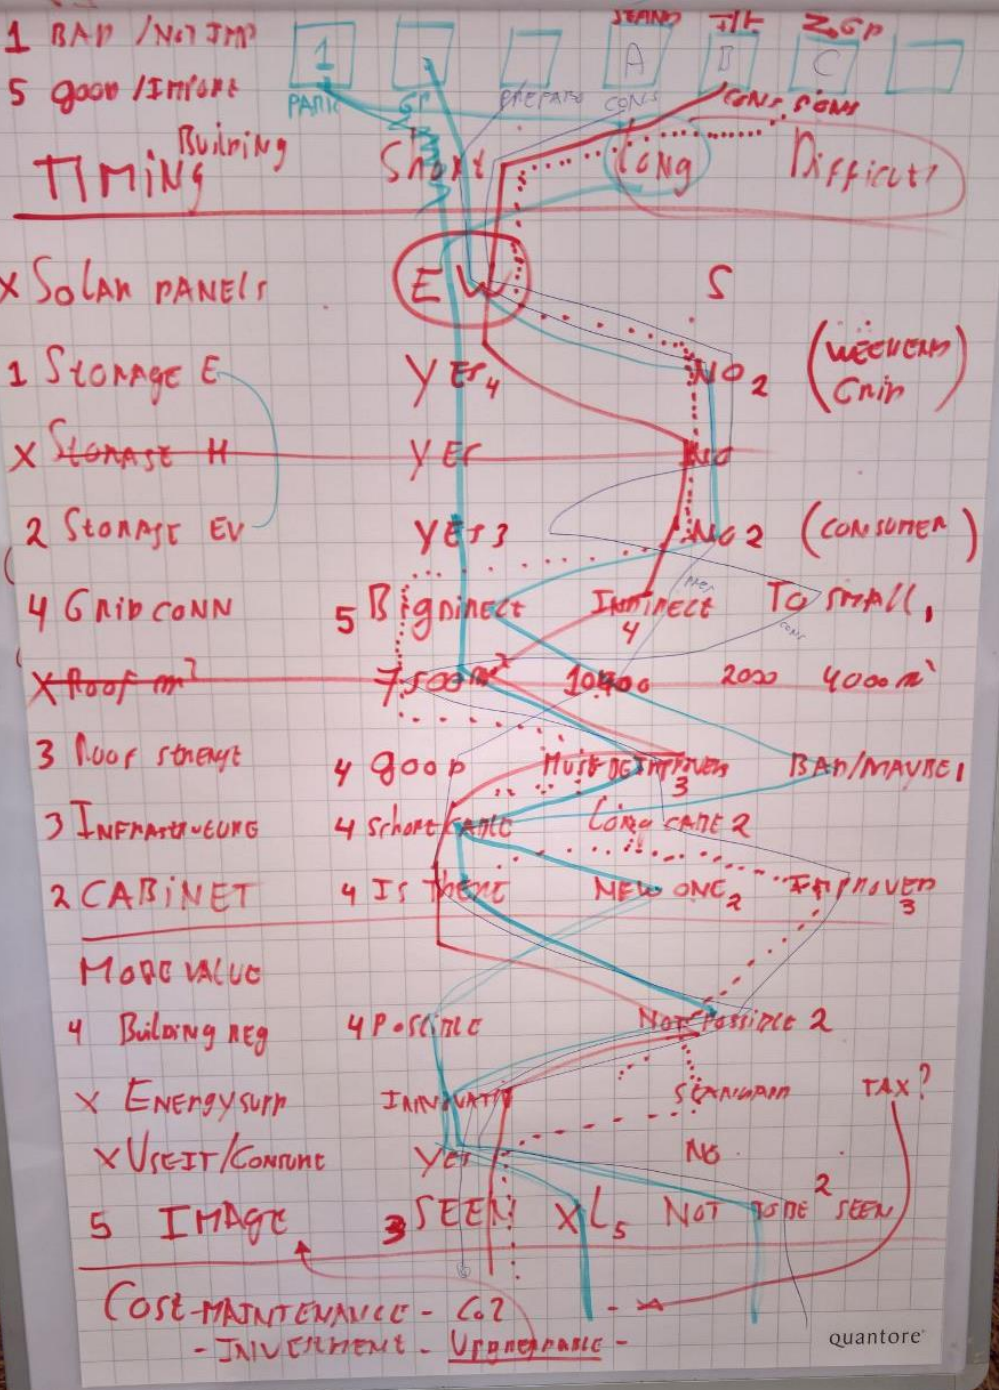 STAND Z.GP
1 BAD / NOT IMP 1 A B C
5 good / IMPORT PARK GP PREPARD CONS CONS SIONS
TIMING Building Short Long Difficult
X SOLAR PANELS E W S
1 Storage E YES 4 NO 2 (WEEKEND) GRID
X Storage H YES NO
2 Storage EV YES 3 NO 2 (CONSUMER)
4 GRID CONN 5 Big DIRECT INDIRECT 4 TO SMALL 1
X Roof m² 7500 m² 2000 4000 m²
3 Roof Strengt 4 good MUST BE IMPROVED 3 BAD/MAYBE 1
3 INFRASTRUCTURE 4 Schort CABLE Long CABLE 2
2 CABINET 4 IS THERE NEW ONE 2 IMPROVED 3
MORE VALUE
4 Building REG 4 POSSIBLE NOT POSSIBLE 2
X ENERGY SUPP INNOVATIV STANDARD TAX?
X USE-IT/CONSUME Yes NO
5 IMAGE 3 SEEN XL 5 NOT TO BE SEEN 2
COST - MAINTENANCE - CO2
- INVESTMENT - UPGREADABLE -
quantore